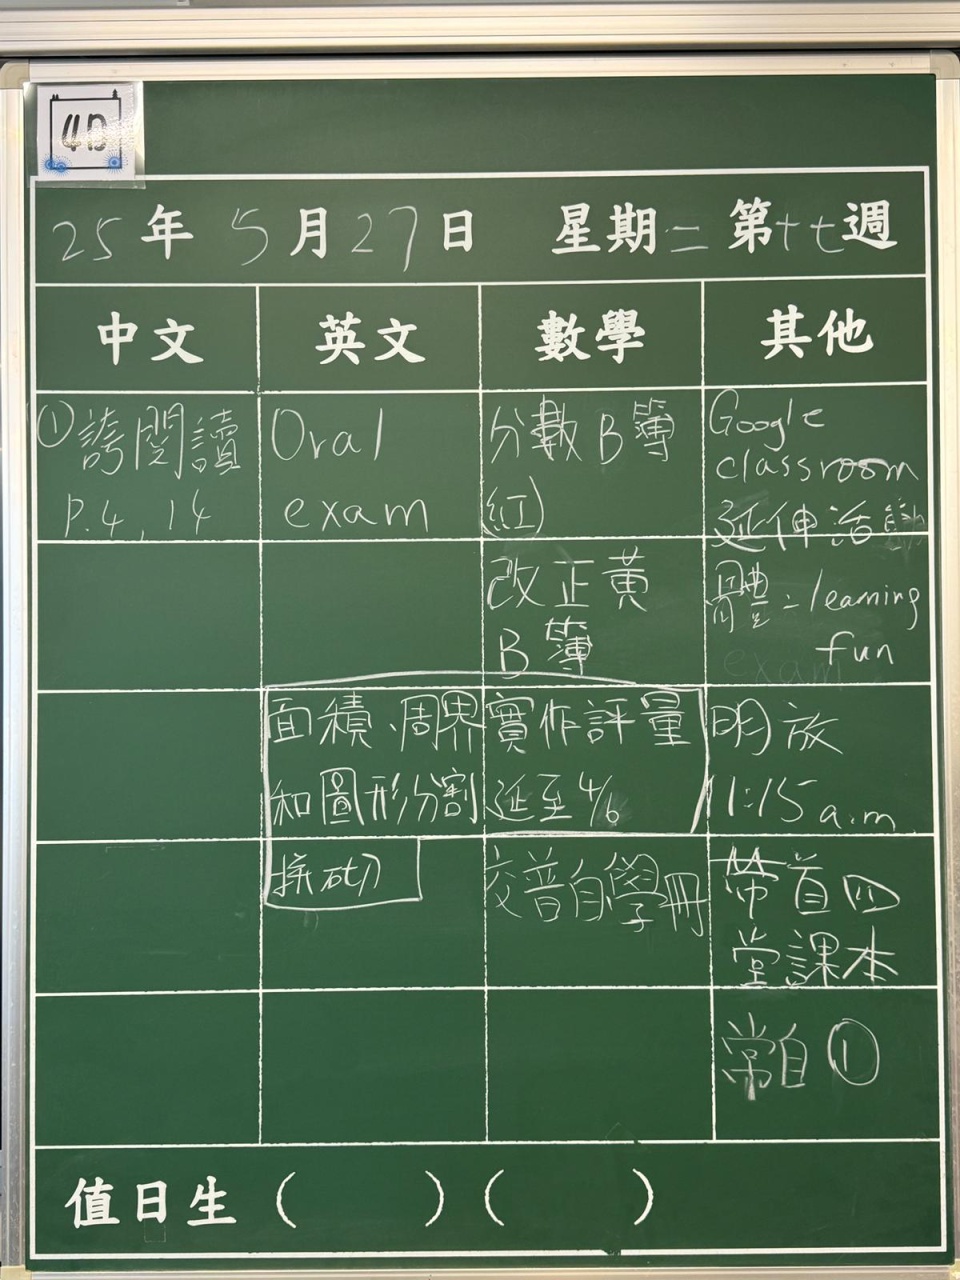 4D
25年 5月27日 星期二 第十七週
中文 英文 數學 其他
①誇閱讀
P.4, 14
Oral
exam
分數B簿
(紅)
Google
classroom
延伸活動
改正黃
B簿
體=learning
fun
exam
面積、周界
和圖形分割
拼砌
實作評量
延至4/6
明放
11:15 a.m
交普自學冊
帶首四
堂課本
常自①
值日生 ( ) ( )